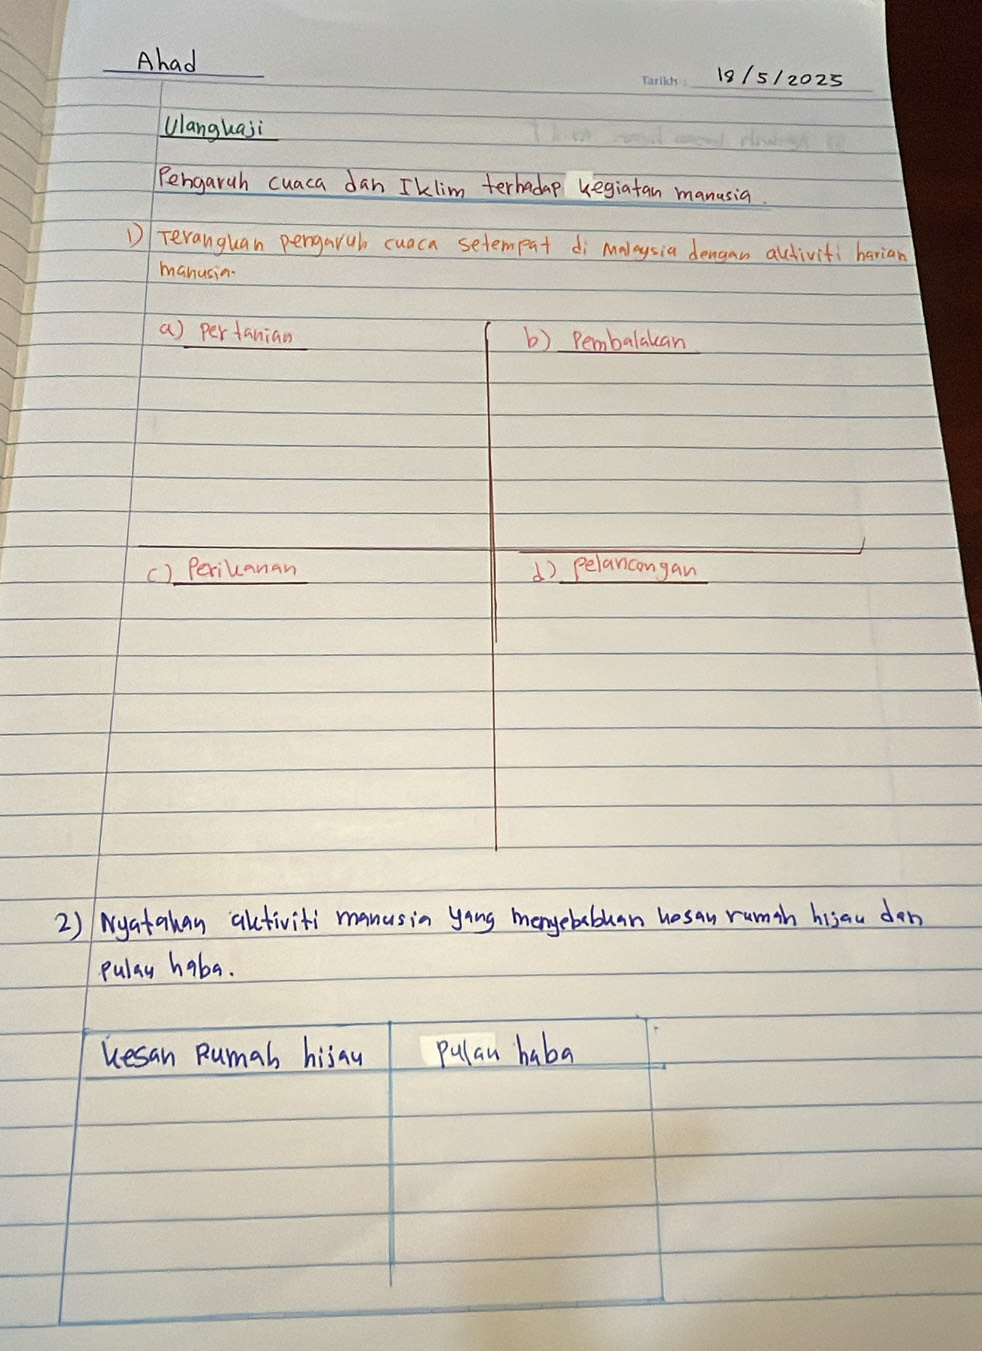 Ahad
Tarikh: 18/5/2025
Ulangkaji
Pengaruh cuaca dan Iklim terhadap kegiatan manusia.
1) Terangkan pengaruh cuaca setempat di Malaysia dengan aktiviti harian
manusia.
a) pertanian
b) Pembalakan
c) Perikanan
d) pelancongan
2) Nyatakan aktiviti manusia yang menyebabkan kesan rumah hijau dan
pulau haba.
Kesan Rumah hijau
Pulau haba